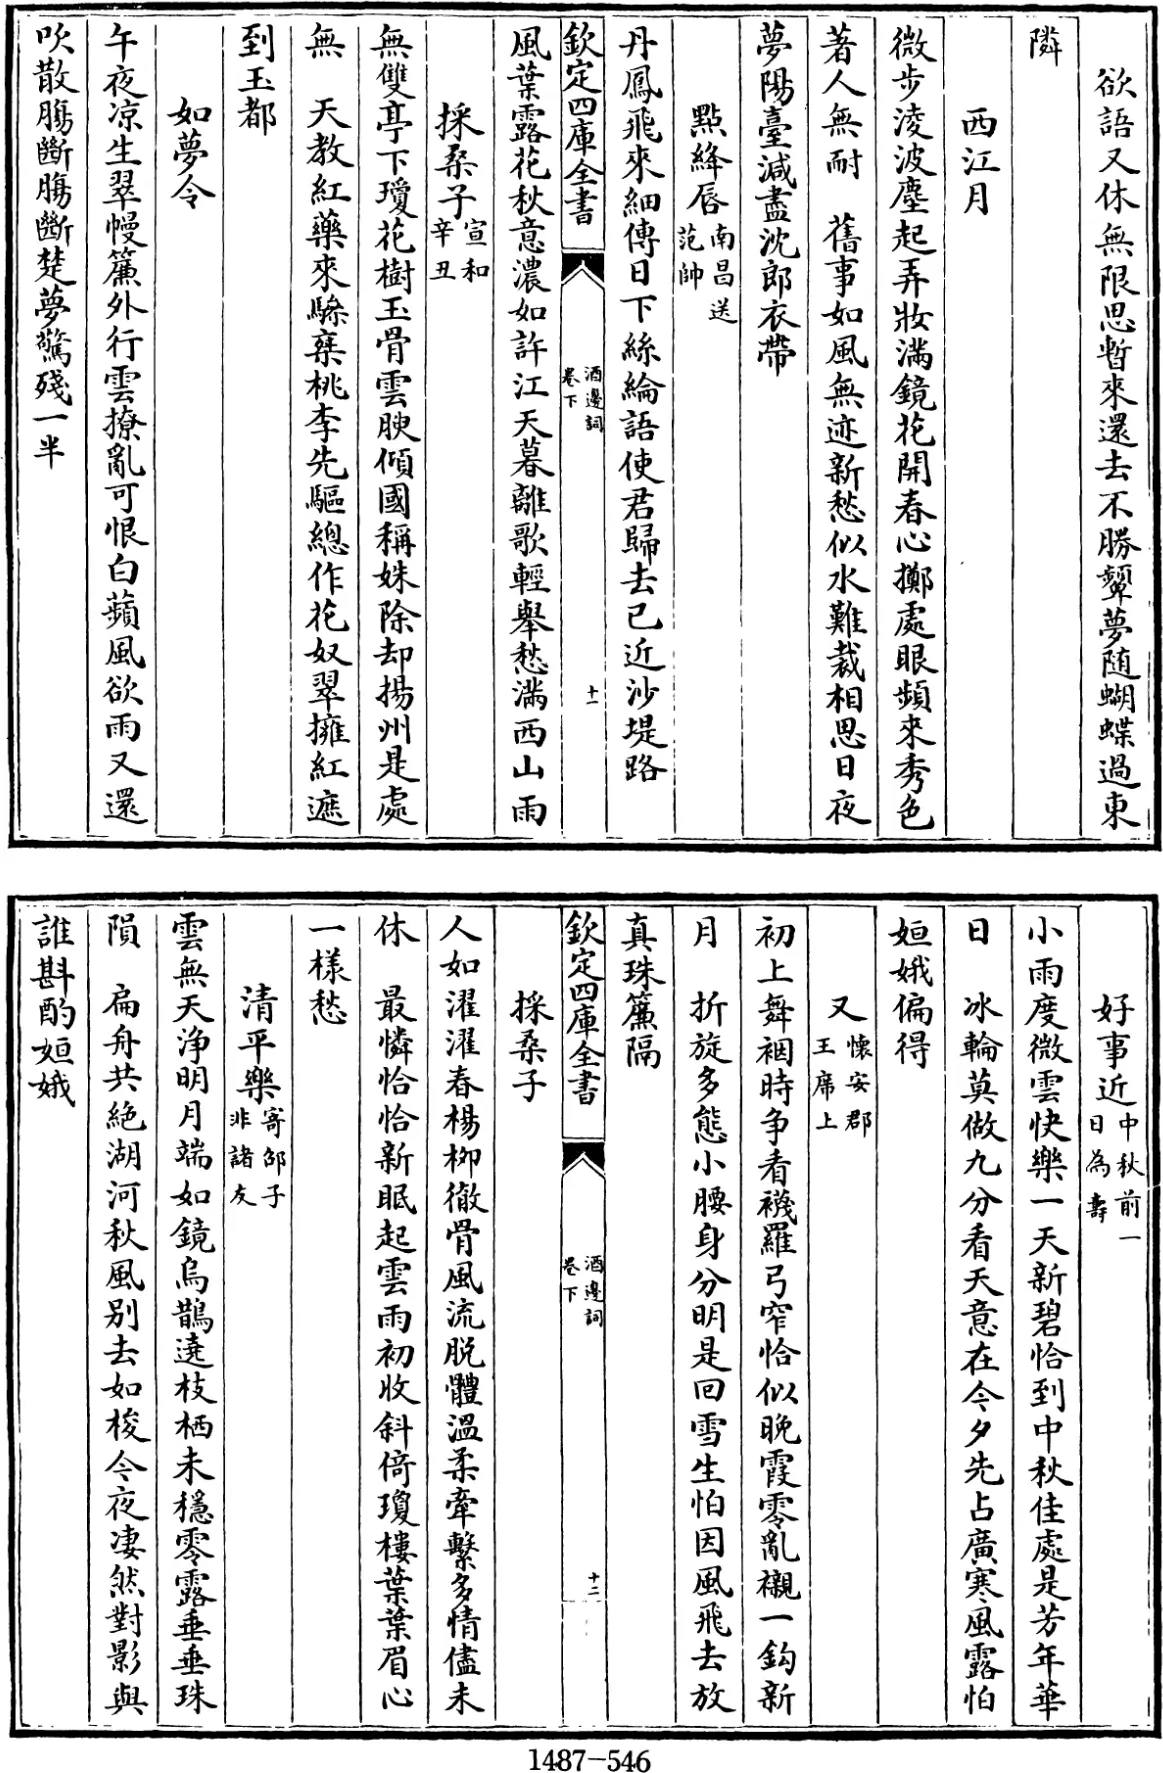 欲語又休無限思暫來還去不勝顰夢随蝴蝶過東
隣
西江月
微步淩波塵起弄妝滿鏡花開春心擲處眼頻來秀色
著人無耐　舊事如風無迹新愁似水難裁相思日夜
夢陽臺減盡沈郎衣帶
點絳唇南昌送范帥
丹鳳飛來細傳日下絲綸語使君歸去已近沙堤路
欽定四庫全書
酒邊詞
卷下
十一
風葉露花秋意濃如許江天暮離歌輕舉愁滿西山雨
採桑子宣和辛丑
無雙亭下瓊花樹玉骨雲腴傾國稱姝除却揚州是處
無　天教紅藥來驂乘桃李先驅總作花奴翠擁紅遮
到玉都
如夢令
午夜凉生翠幔簾外行雲撩亂可恨白蘋風欲雨又還
吹散腸斷腸斷楚夢驚殘一半
好事近中秋前一日為壽
小雨度微雲快樂一天新碧恰到中秋佳處是芳年華
日　冰輪莫做九分看天意在今夕先占廣寒風露怕
姮娥偏得
又懷安郡王席上
初上舞裀時争看襪羅弓窄恰似晚霞零亂襯一鈎新
月　折旋多態小腰身分明是回雪生怕因風飛去放
真珠簾隔
欽定四庫全書
酒邊詞
卷下
十二
採桑子
人如濯濯春楊柳徹骨風流脱體溫柔牽繫多情儘未
休　最憐恰恰新眠起雲雨初收斜倚瓊樓葉葉眉心
一樣愁
清平樂寄邵子非諸友
雲無天净明月端如鏡烏鵲遶枝栖未穩零露垂垂珠
隕　扁舟共絶湖河秋風别去如梭今夜凄然對影與
誰斟酌姮娥
1487-546